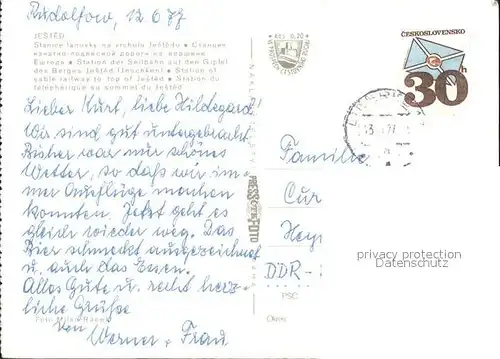 Rudolfow, 12.6.77
JEŠTĚD
Stanice lanovky na vrcholu Ještědu • Станция
канатно-подвесной дороги на вершине
Europas • Station der Seilbahn auf den Gipfel
des Berges Ještěd (Jeschken) • Station of
cable railway to top of Ještěd • Station du
téléphérique au sommet du Ještěd
Lieber Kurt, liebe Hildegard!
Wir sind gut untergebracht
Bisher war nur schönes
Wetter, so daß wir im-
mer Ausflüge machen
konnten. Jetzt geht es
gleich wieder weg. Das
Bier schmeckt ausgezeichnet
u. auch das Essen.
Alles Gute u. recht herz-
liche Grüße
Von Werner + Frau
Foto Milan
Kčs 0,20
PRESSFOTO
PRAHA
ČESKOSLOVENSKO
30h
Familie
Cur
Hey
DDR-
PSČ
Okres
privacy protection
Datenschutz